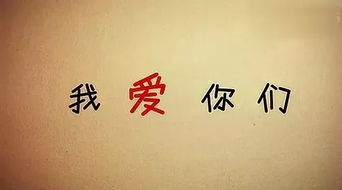 我爱你们